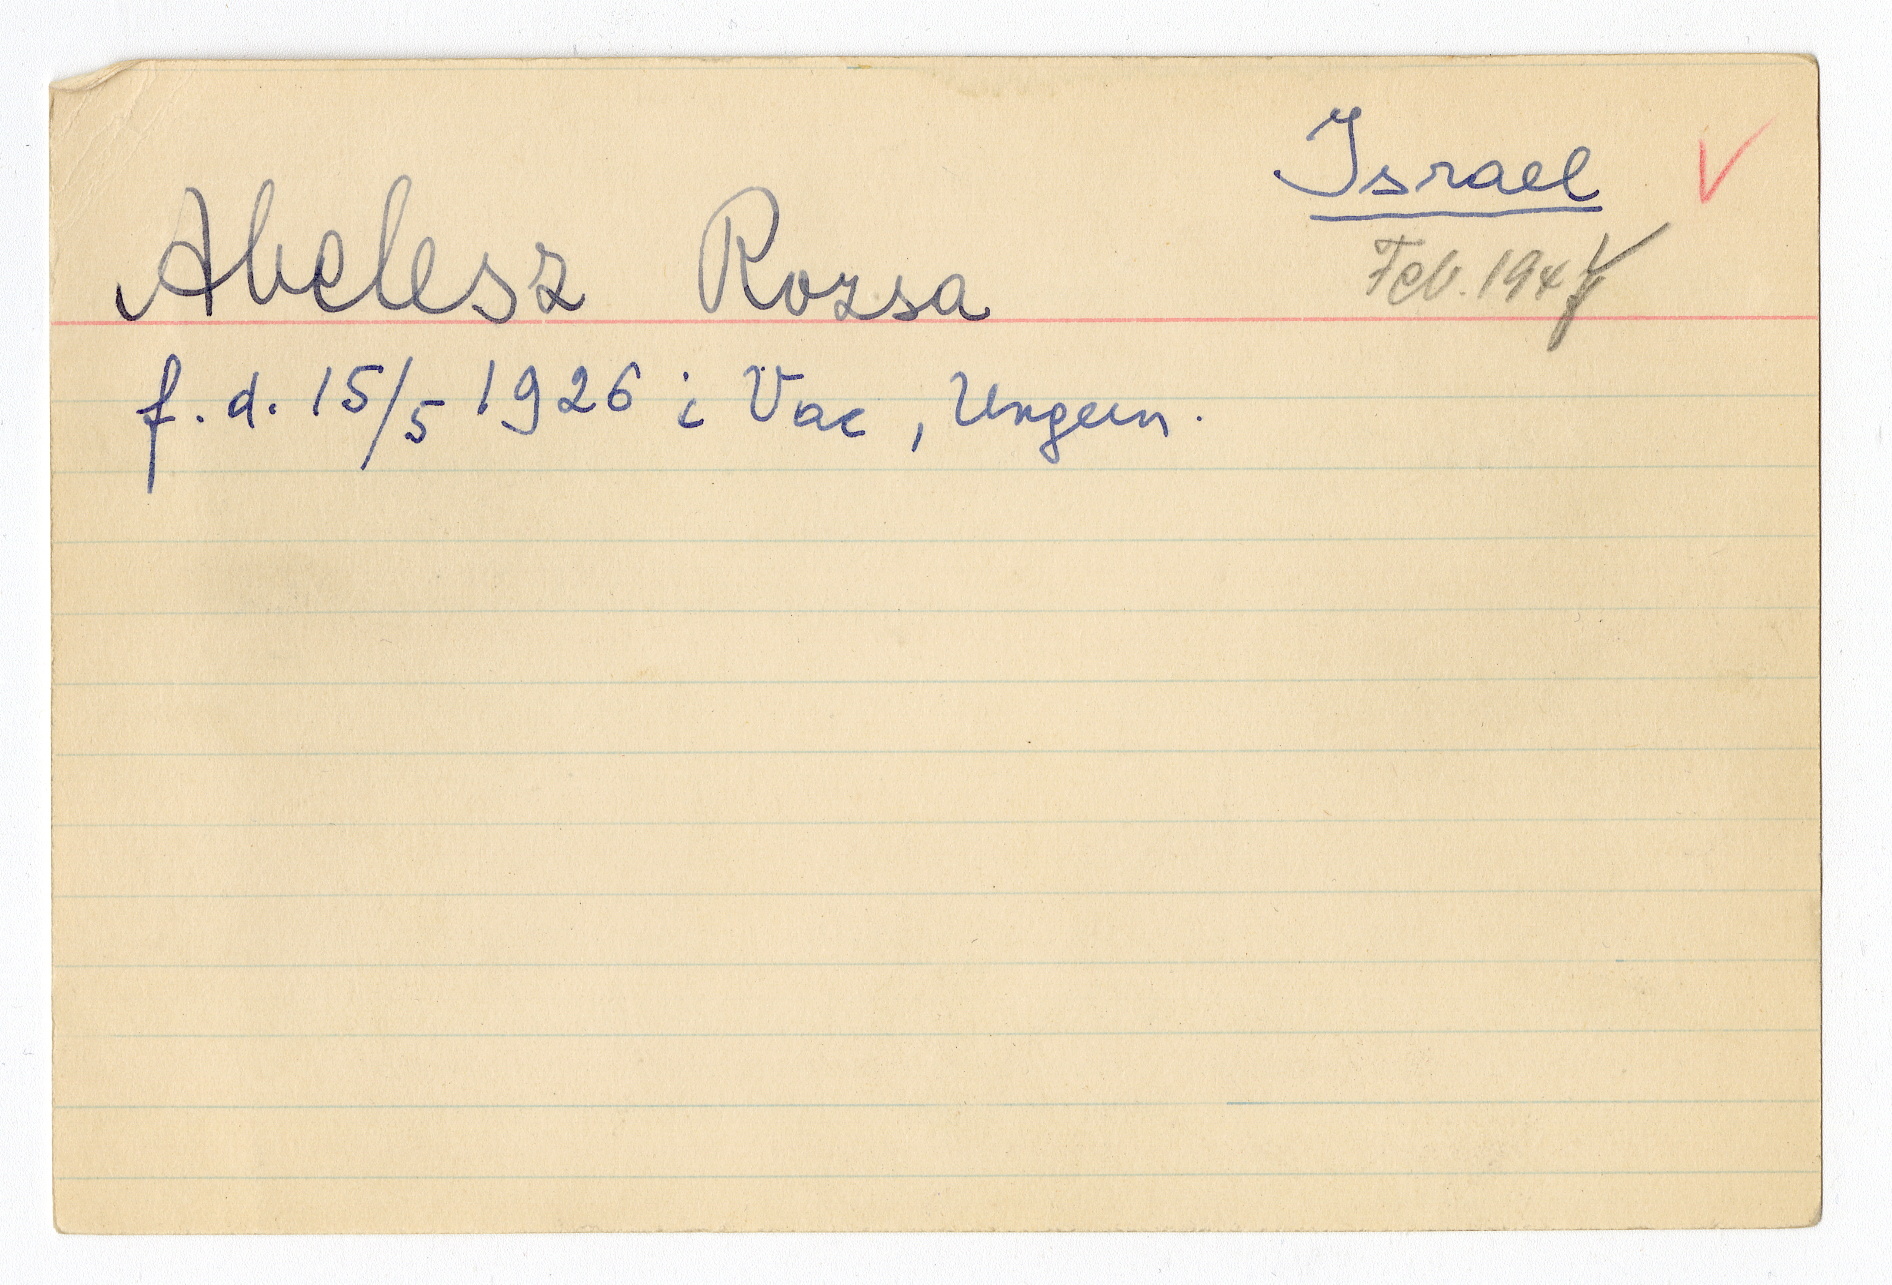 Israel
Abelesz Rozsa
Feb. 194
f. d. 15/5 1926 i Vac, Ungern.